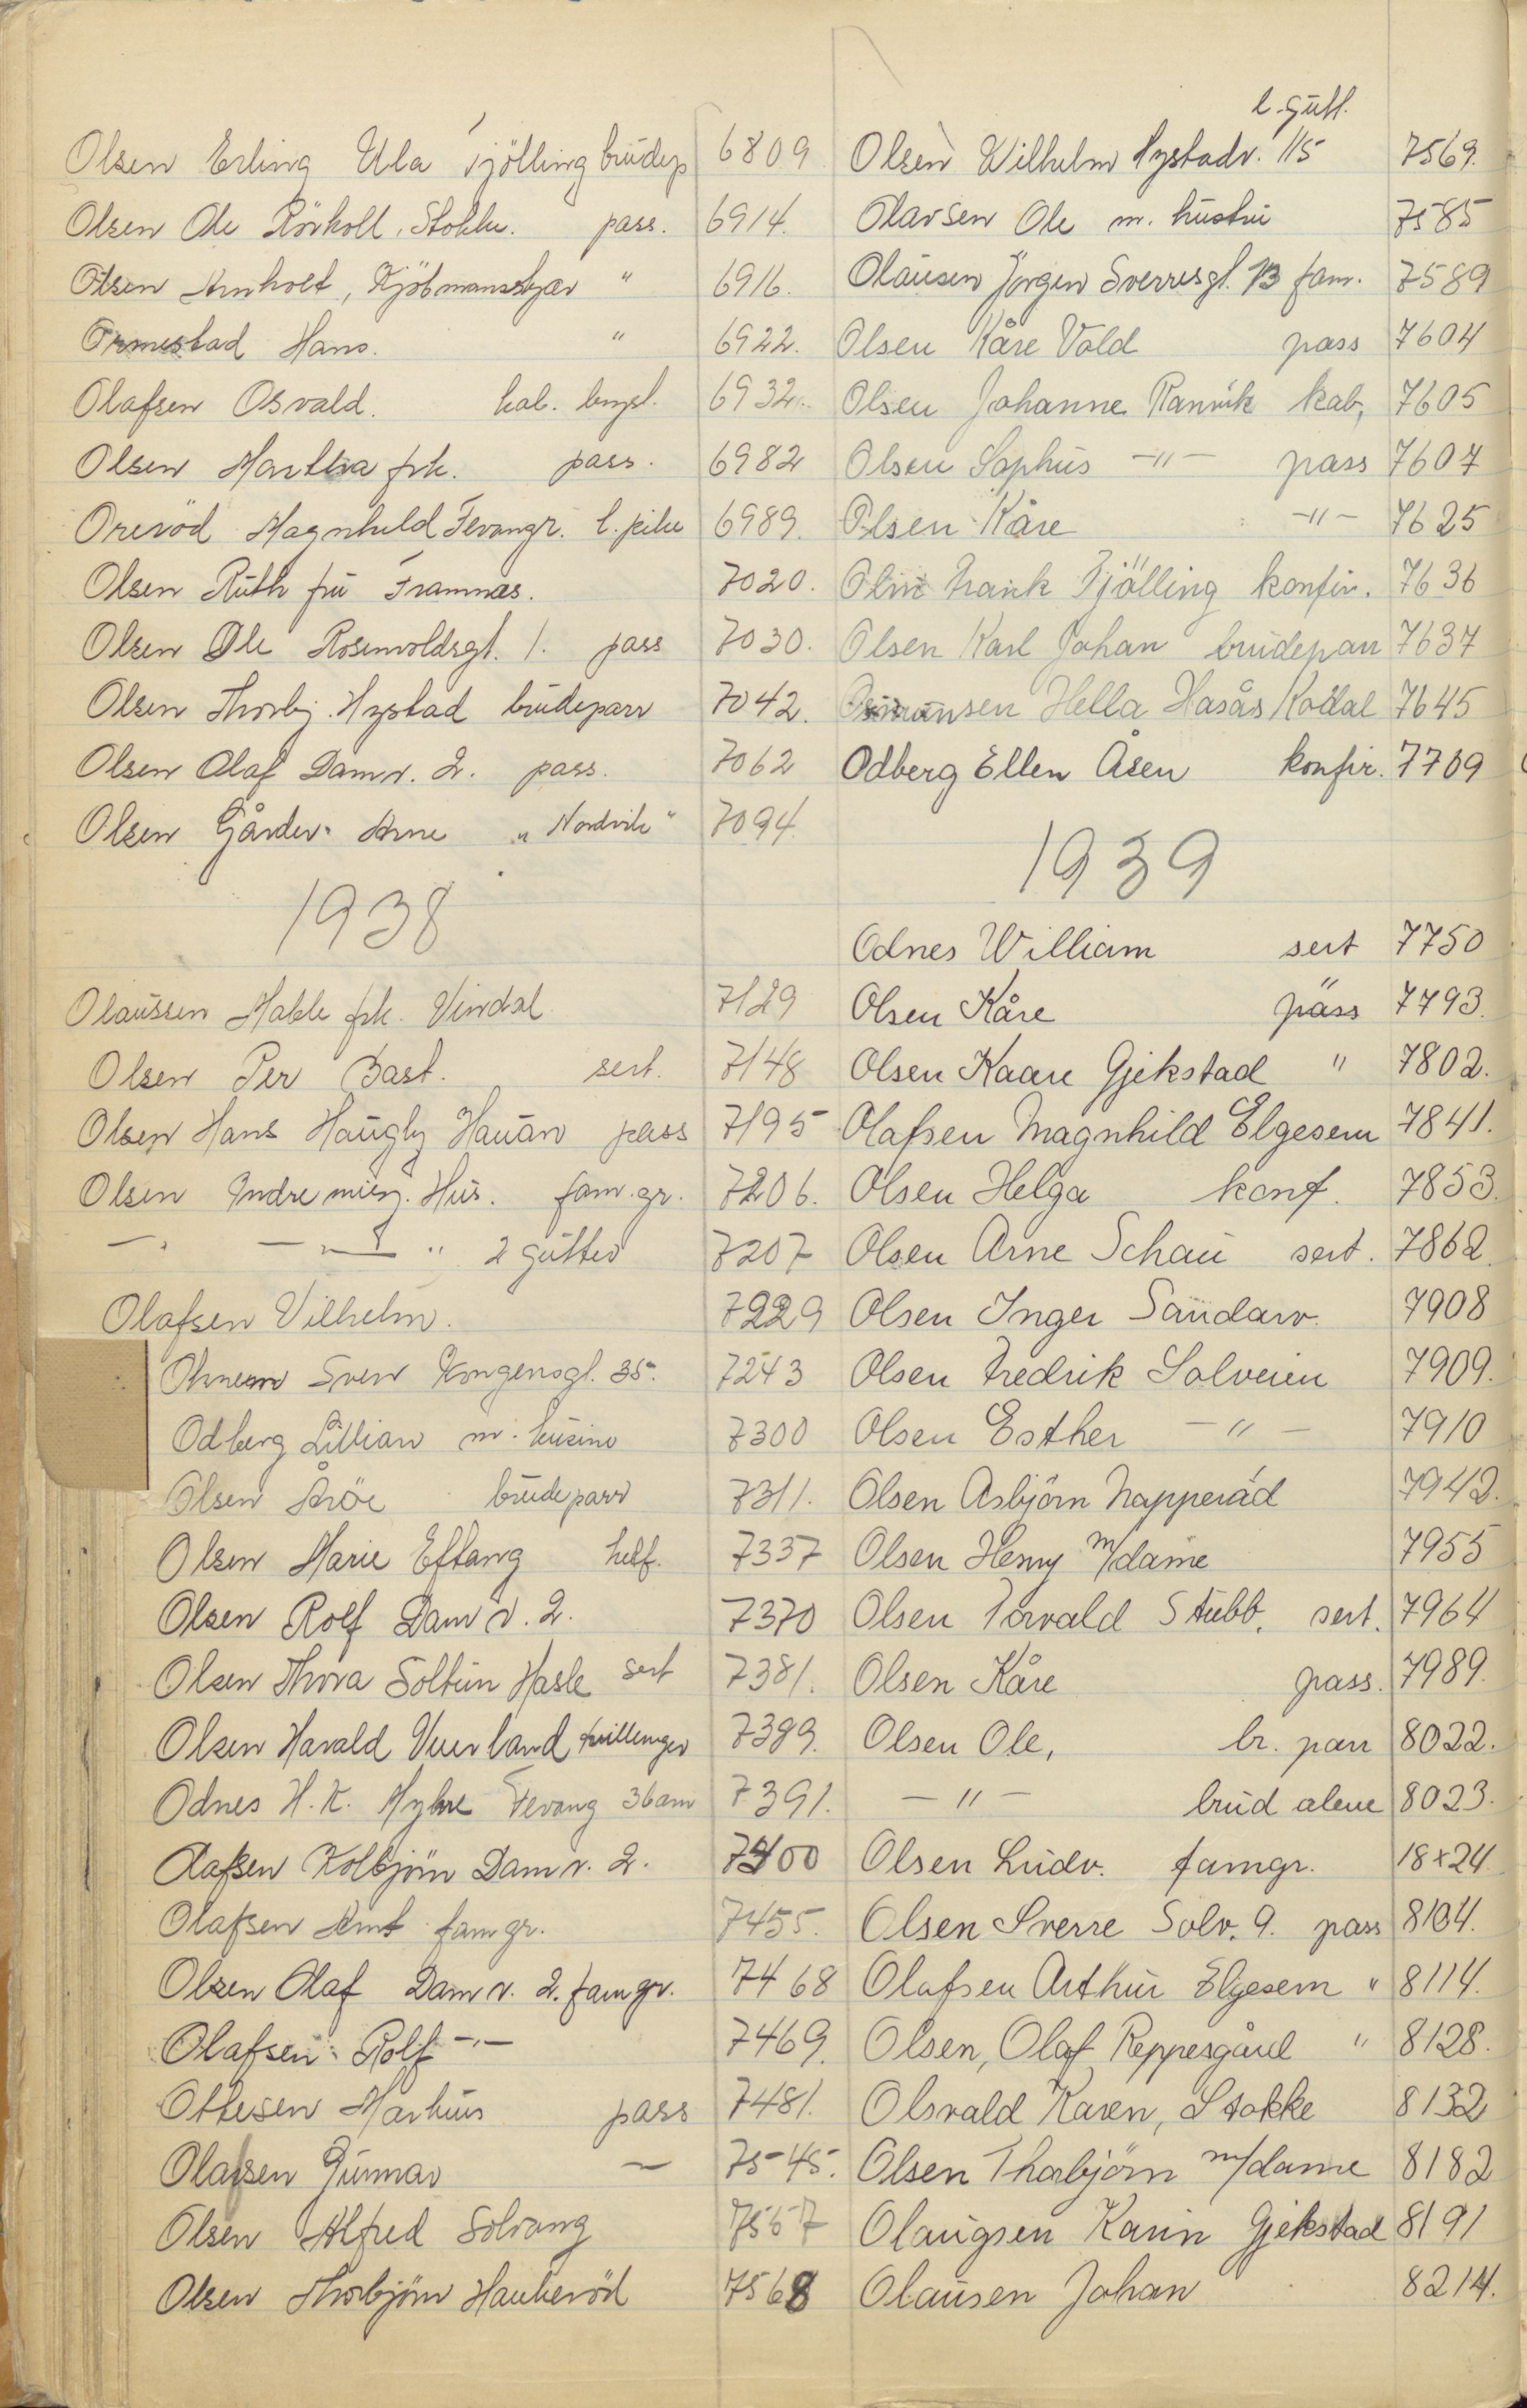 Olsen Erling Ula Tjölling brudep 6809
Olsen Ole Rörkoll, Stokke. pass. 6914.
Olsen Arnholt, Kjöbmannskjær " 6916.
Ormestad Hans. " 6922.
Olafsen Osvald. kab. 6932.
Olsen Martha frk. pass. 6982
Oreröd Magnhild Fevangr. l. pike 6989.
Olsen Ruth fru Framnæs. 7020.
Olsen Ole Rosenvoldsgt. 1. pass 7030.
Olsen Thorbj. Nystad brudepar 7042.
Olsen Olaf Damv. 2. pass. 7062
Olsen Gårder Arne „Nordvik" 7094.
1938
Olaussen Mable frk. Vindal 7129
Olsen Per Bast. sert. 7148
Olsen Hans Haugly Hauan pass 7195
Olsen Indre miss. Hus. fam. gr. 7206.
— " — " 2 gutter 7207
Olafsen Vilhelm. 7229
Sven Kongensgt. 35. 7243
Odberg Lillian m. kusine 7300
Olsen Aröe brudepar 7311.
Olsen Marie Eftang helf. 7337
Olsen Rolf Damv. 2. 7370
Olsen Thora Soltun Hasle sert 7381.
Olsen Harald Veierland tvillinger 7389.
Odnes H. K. Myhre Fevang 36am 7391.
Olafsen Kolbjörn Damv. 2. 7400
Olafsen Arnt famgr. 7455.
Olsen Olaf Damv. 2. famgr. 7468
Olafsen Rolf —"— 7469.
Ottesen Markus pass 7481.
Olafsen Gunnar — 7545.
Olsen Alfred Solvang 7567
Olsen Thorbjörn Haukeröd 7568
l. gutt.
Olsen Wilhelm Nystadv. 115 7569.
Olavsen Ole m. hustru 7585
Olausen Jörgen Sverresgt. 13 fam. 7589
Olsen Kåre Vold pass 7604
Olsen Johanne Ranvik kab, 7605
Olsen Sophus —"— pass 7607
Olsen Kåre —"— 7625
Frank Tjölling konfir. 7636
Olsen Karl Johan brudepar 7637
Hella Hasås Kodal 7645
Odberg Ellen Åsen konfir. 7709
1939
Odnes William sert 7750
Olsen Kåre pass 7793.
Olsen Kaare Gjekstad " 7802.
Olafsen Magnhild Elgesem 7841.
Olsen Helga konf. 7853.
Olsen Arne Schau sert. 7862.
Olsen Inger Sandarv. 7908
Olsen Fredrik Solveien 7909.
Olsen Esther —"— 7910
Olsen Asbjörn Napperåd 7942.
Olsen Henry m/dame 7955
Olsen Torvald Stubb. sert. 7964
Olsen Kåre pass. 7989.
Olsen Ole, br. par 8022.
—"— brud alene 8023.
Olsen Ludv. famgr. 18x24
Olsen Sverre Solv. 9. pass 8104.
Olafsen Arthur Elgesem " 8114.
Olsen, Olaf Reppesgård " 8128.
Olsvald Karen, Stokke 8132
Olsen Thorbjörn m/dame 8182
Olaugsen Karin Gjekstad 8191
Olausen Johan 8214.